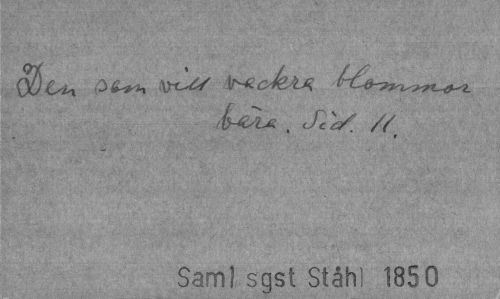 Den som vill vackra blommor
bära. Sid. 11.
Saml sgst Ståhl 1850